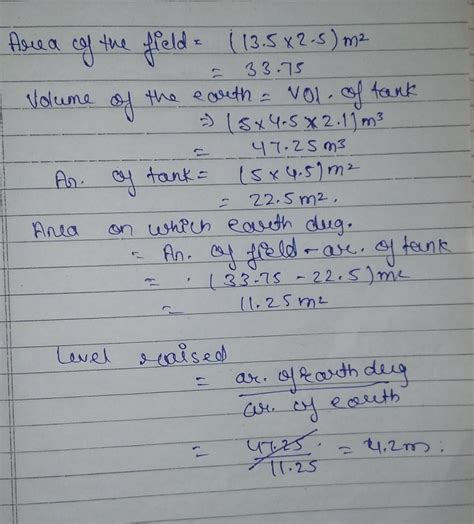 Area of the field = (13.5 x 2.5) m²
= 33.75
Volume of the earth = Vol. of tank
⇒ (5 x 4.5 x 2.1) m³
= 47.25 m³
Ar. of tank = (5 x 4.5) m²
= 22.5 m².
Area on which earth dug.
= Ar. of field - ar. of tank
= (33.75 - 22.5) m²
= 11.25 m²
Level raised
= ar. of earth dug
ar. of earth
= 47.25 = 4.2 m.
11.25